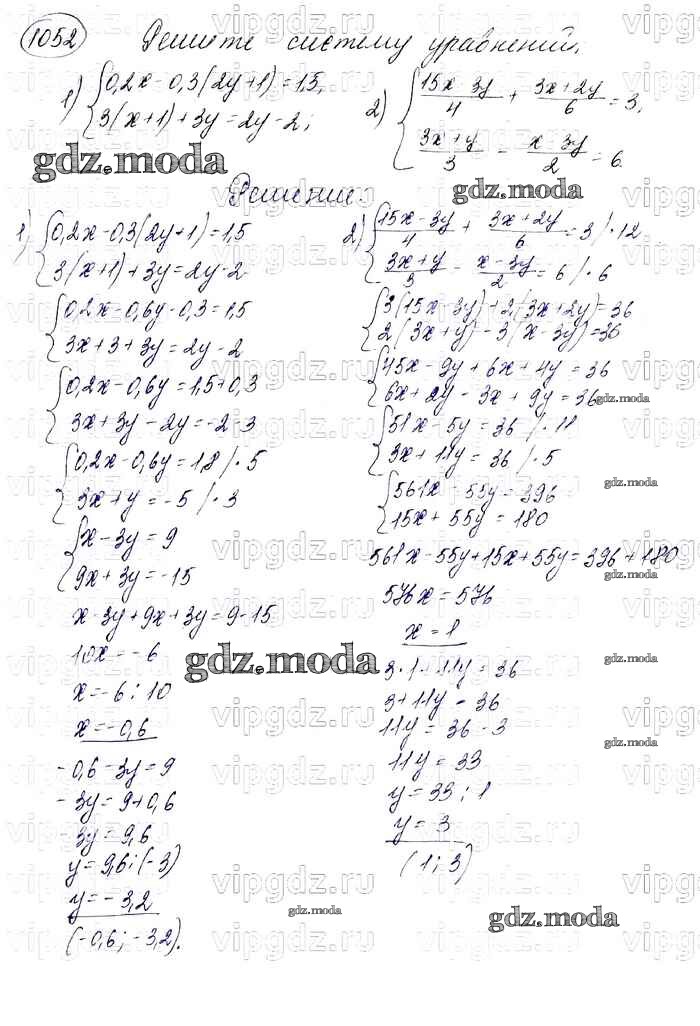 1052 Решите систему уравнений.
1) {0,2x-0,3(2y+1)=1,5,
3(x+1)+3y=2y-2;
2) {15x 3y/4 + 3x+2y/6 = 3,
3x+y/3 - x-3y/2 = 6.
gdz.moda
gdz.moda
Решение:
1) {0,2x-0,3(2y+1)=1,5
3(x+1)+3y=2y-2
{0,2x-0,6y-0,3=1,5
3x+3+3y=2y-2
{0,2x-0,6y=1,5+0,3
3x+3y-2y=-2-3
{0,2x-0,6y=1,8 /·5
3x+y=-5 /·3
{x-3y=9
9x+3y=-15
x-3y+9x+3y=9-15
10x=-6
x=-6:10
x=-0,6
-0,6-3y=9
-3y=9+0,6
-3y=9,6
y=9,6:(-3)
y=-3,2
(-0,6;-3,2).
2) {15x-3y/4 + 3x+2y/6 = 3 /·12
3x+y/3 - x-3y/2 = 6 /·6
{3(15x-3y)+2(3x+2y)=36
2(3x+y)-3(x-3y)=36
{45x-9y+6x+4y=36
6x+2y-3x+9y=36
{51x-5y=36 /·11
3x+11y=36 /·5
{561x-55y=396
15x+55y=180
561x-55y+15x+55y=396+180
576x=576
x=1
3·1-11y=36
3+11y=36
11y=36-3
11y=33
y=33:1
y=3
(1;3)
gdz.moda
gdz.moda
gdz.moda
gdz.moda
gdz.moda
gdz.moda
gdz.moda
gdz.moda
vipgdz.ru